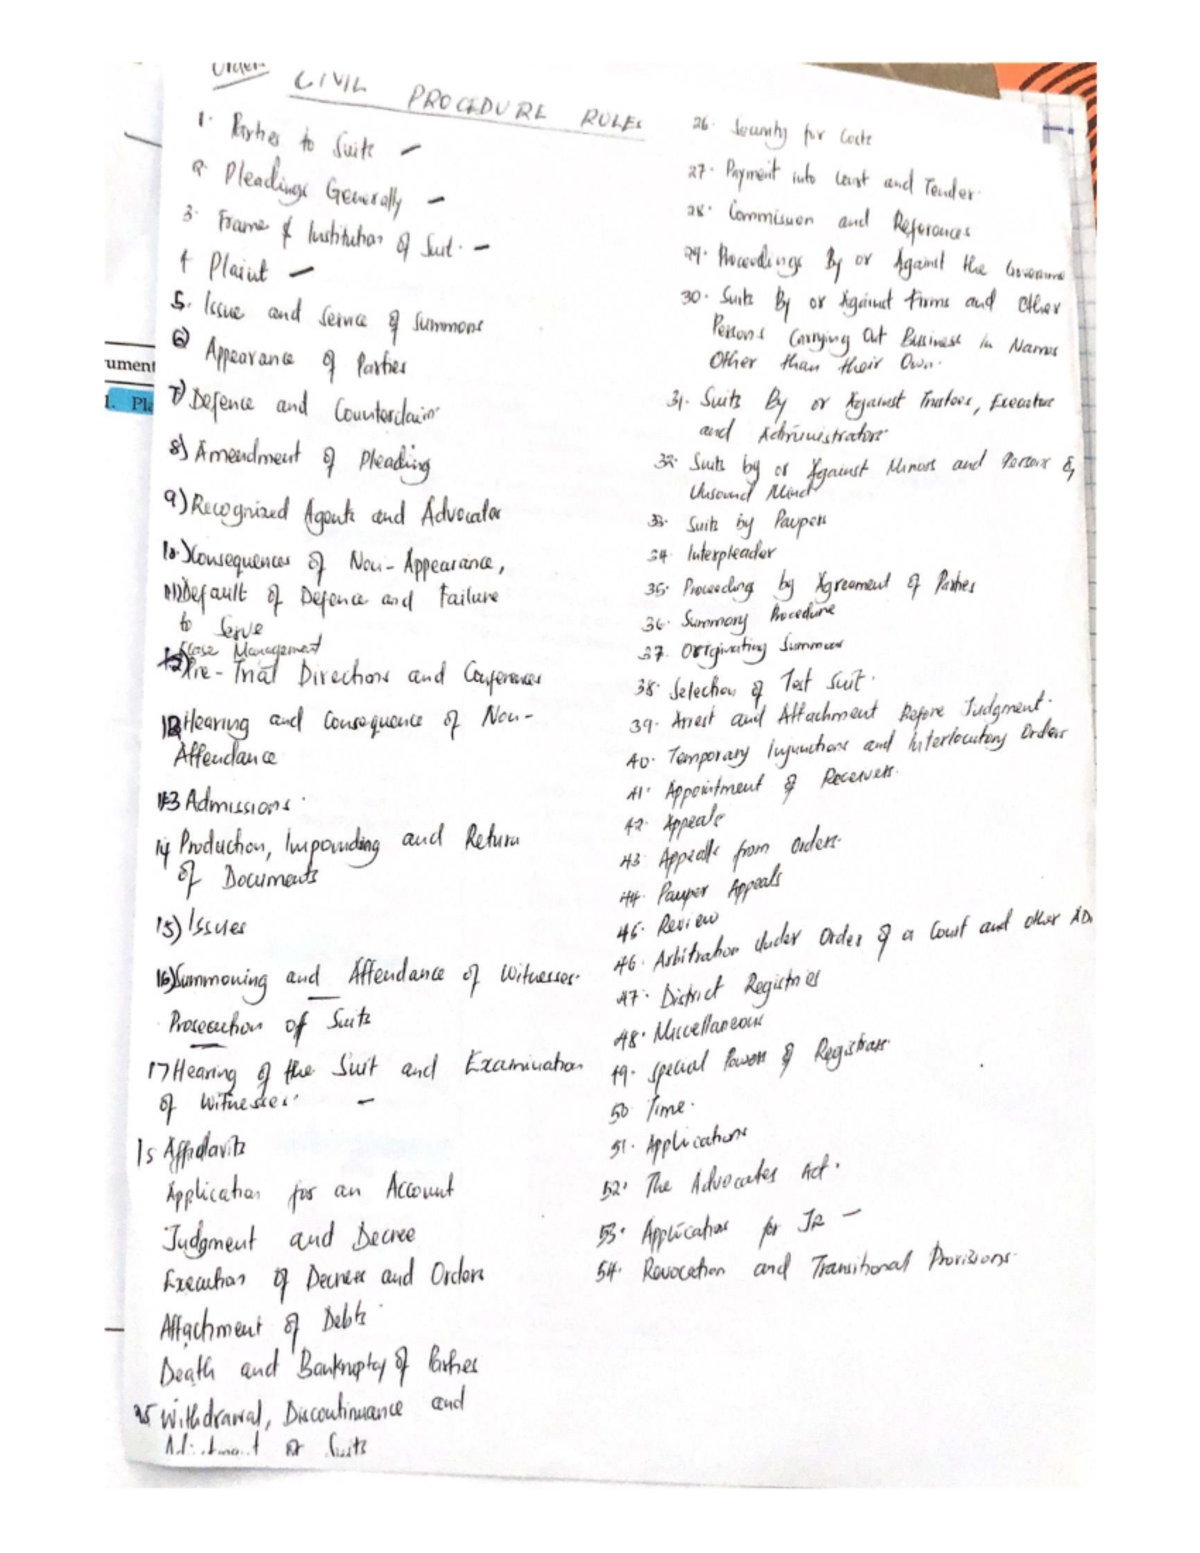 Order
CIVIL PROCEDURE RULES
1. Parties to Suits –
2. Pleadings Generally –
3. Frame & Institution of Suit. –
4 Plaint –
5. Issue and Service of Summons
6) Appearance of Parties
7) Defence and Counterclaim
8) Amendment of Pleading
9) Recognized Agents and Advocates
10.) Consequences of Non-Appearance,
11) Default of Defence and Failure
to Serve
Case Management
Pre-Trial Directions and Conferences
12 Hearing and Consequence of Non-
Attendance
13 Admissions.
14 Production, Impounding and Return
of Documents
15) Issues
16) Summoning and Attendance of Witnesses.
Prosecution of Suits
17 Hearing of the Suit and Examination
of Witnesses. –
Affidavits
Application for an Account
Judgment and Decree
Execution of Decrees and Orders
Attachment of Debts
Death and Bankruptcy of Parties
25 Withdrawal, Discontinuance and
Adjustment of Suits
26. Security for Costs
27. Payment into Court and Tender.
28. Commission and References
29. Proceedings By or Against the Governme
30. Suits By or Against Firms and Other
Persons Carrying Out Business in Names
Other than their Own.
31. Suits By or Against Trustees, Executors
and Administrators
32. Suits by or Against Minors and Persons of
Unsound Mind
33. Suits by Paupers
34. Interpleader
35. Proceeding by Agreement of Parties
36. Summary Procedure
37. Originating Summons
38. Selection of Test Suit.
39. Arrest and Attachment Before Judgment.
40. Temporary Injunctions and Interlocutory Orders
41. Appointment of Receivers.
42. Appeals
43. Appeals from Orders.
44. Pauper Appeals
45. Review
46. Arbitration Under Order of a Court and other AD
47. District Registries
48. Miscellaneous
49. Special Powers of Registrars.
50 Time.
51. Applications
52. The Advocates Act.
53. Application for JR –
54. Revocation and Transitional Provisions.
ument
1. Pla